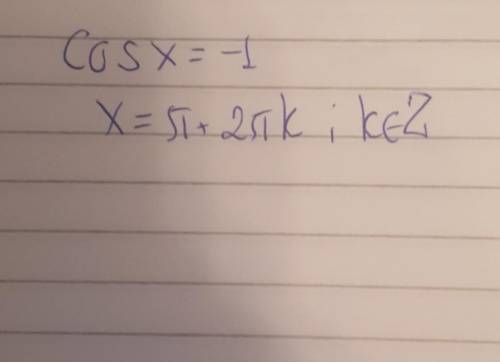 cos x = -1
x = π + 2πk ; k∈Z